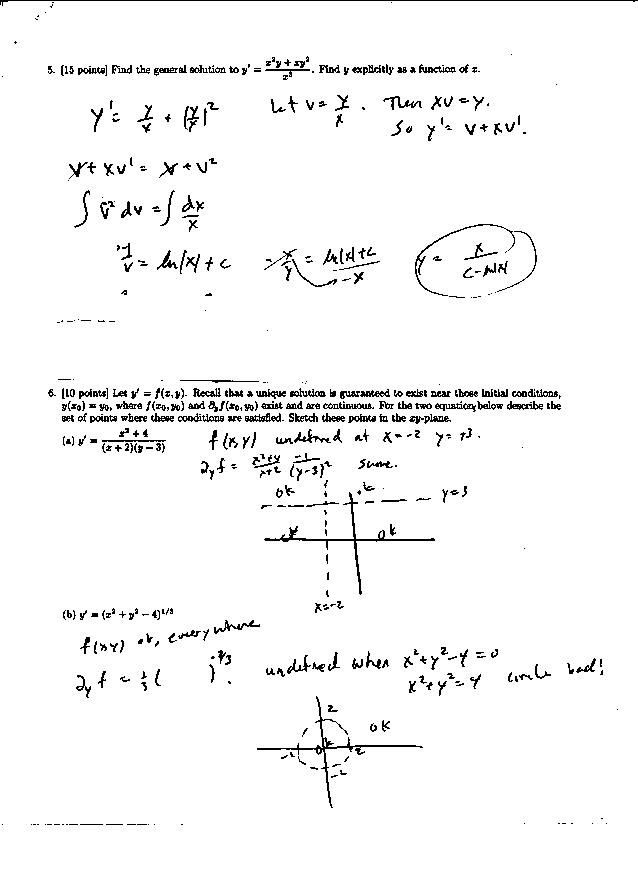 5. [15 points] Find the general solution to y' = (x²y + xy²)/x³. Find y explicitly as a function of x.
y' = y/x + (y/x)² Let v = y/x. Then xv = y.
So y' = v + xv'.
v + xv' = v + v²
∫ v⁻² dv = ∫ dx/x
-1/v = ln|x| + c -x/y = ln|x| + c -x y = x/(c - ln|x|)
6. [10 points] Let y' = f(x, y). Recall that a unique solution is guaranteed to exist near those initial conditions,
y(x₀) = y₀, where f(x₀, y₀) and ∂yf(x₀, y₀) exist and are continuous. For the two equations below describe the
set of points where these conditions are satisfied. Sketch these points in the xy-plane.
(a) y' = (x² + 4)/((x + 2)(y - 3)) f(x,y) undefined at x = -2 y = +3.
∂y f = (x²+4)/(x+2) -1/(y-3)² same.
ok ok y=3
ok ok
x=-2
(b) y' = (x² + y² - 4)^1/3
f(x,y) ok, everywhere
∂y f = 1/3 ( )^-2/3. undefined when x²+y²-4=0
x²+y²=4 circle bad!
2
ok
-2 ok 2
-2